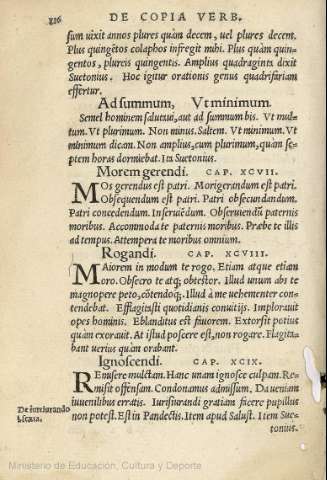 816 DE COPIA VERB.
sum uixit annos plures quàm decem, uel plures decem.
Plus quingẽtos colaphos infregit mihi. Plus quàm quin-
gentos, plureis quingentis. Amplius quadraginta dixit
Suetonius. Hoc igitur orationis genus quadrifariam
effertur.
Ad summum, Vt minimum.
Semel hominem salutaui, aut ad summum bis. Vt mul-
tum. Vt plurimum. Non minus. Saltem. Vt minimum. Vt
minimum dicam. Non amplius, cum plurimum, quàm se-
ptem horas dormiebat. Ita Suetonius.
Morem gerendi. CAP. XCVII.
MOs gerendus est patri. Morigerandum est patri.
Obsequendum est patri. Patri obsecundandum.
Patri concedendum. Inseruiẽdum. Obseruandũ paternis
moribus. Accommoda te paternis moribus. Præbe te illis
ad tempus. Attempera te moribus omnium.
Rogandi. CAP. XCVIII.
MAiorem in modum te rogo. Etiam atque etiam
oro. Obsecro te atq; obtestor. Illud unum abs te
magnopere peto, cõtendoq;. Illud à me uehementer con-
tendebat. Efflagitasti quotidianis conuitijs. Implorauit
opes hominis. Eblanditus est fauorem. Extorsit potius
quàm exorauit. At istud poscere est, non rogare. Flagita-
bant uerius quàm orabant.
Ignoscendi. CAP. XCIX.
REmisere mulctam. Hanc unam ignosce culpam. Re-
misit offensam. Condonamus admissum. Da ueniam
iuuenilibus erratis. Iurisiurandi gratiam facere pupillus
De iureiurando
non potest. Est in Pandectis. Item apud Salust. Item Sue-
tonius.
Ministerio de Educación, Cultura y Deporte